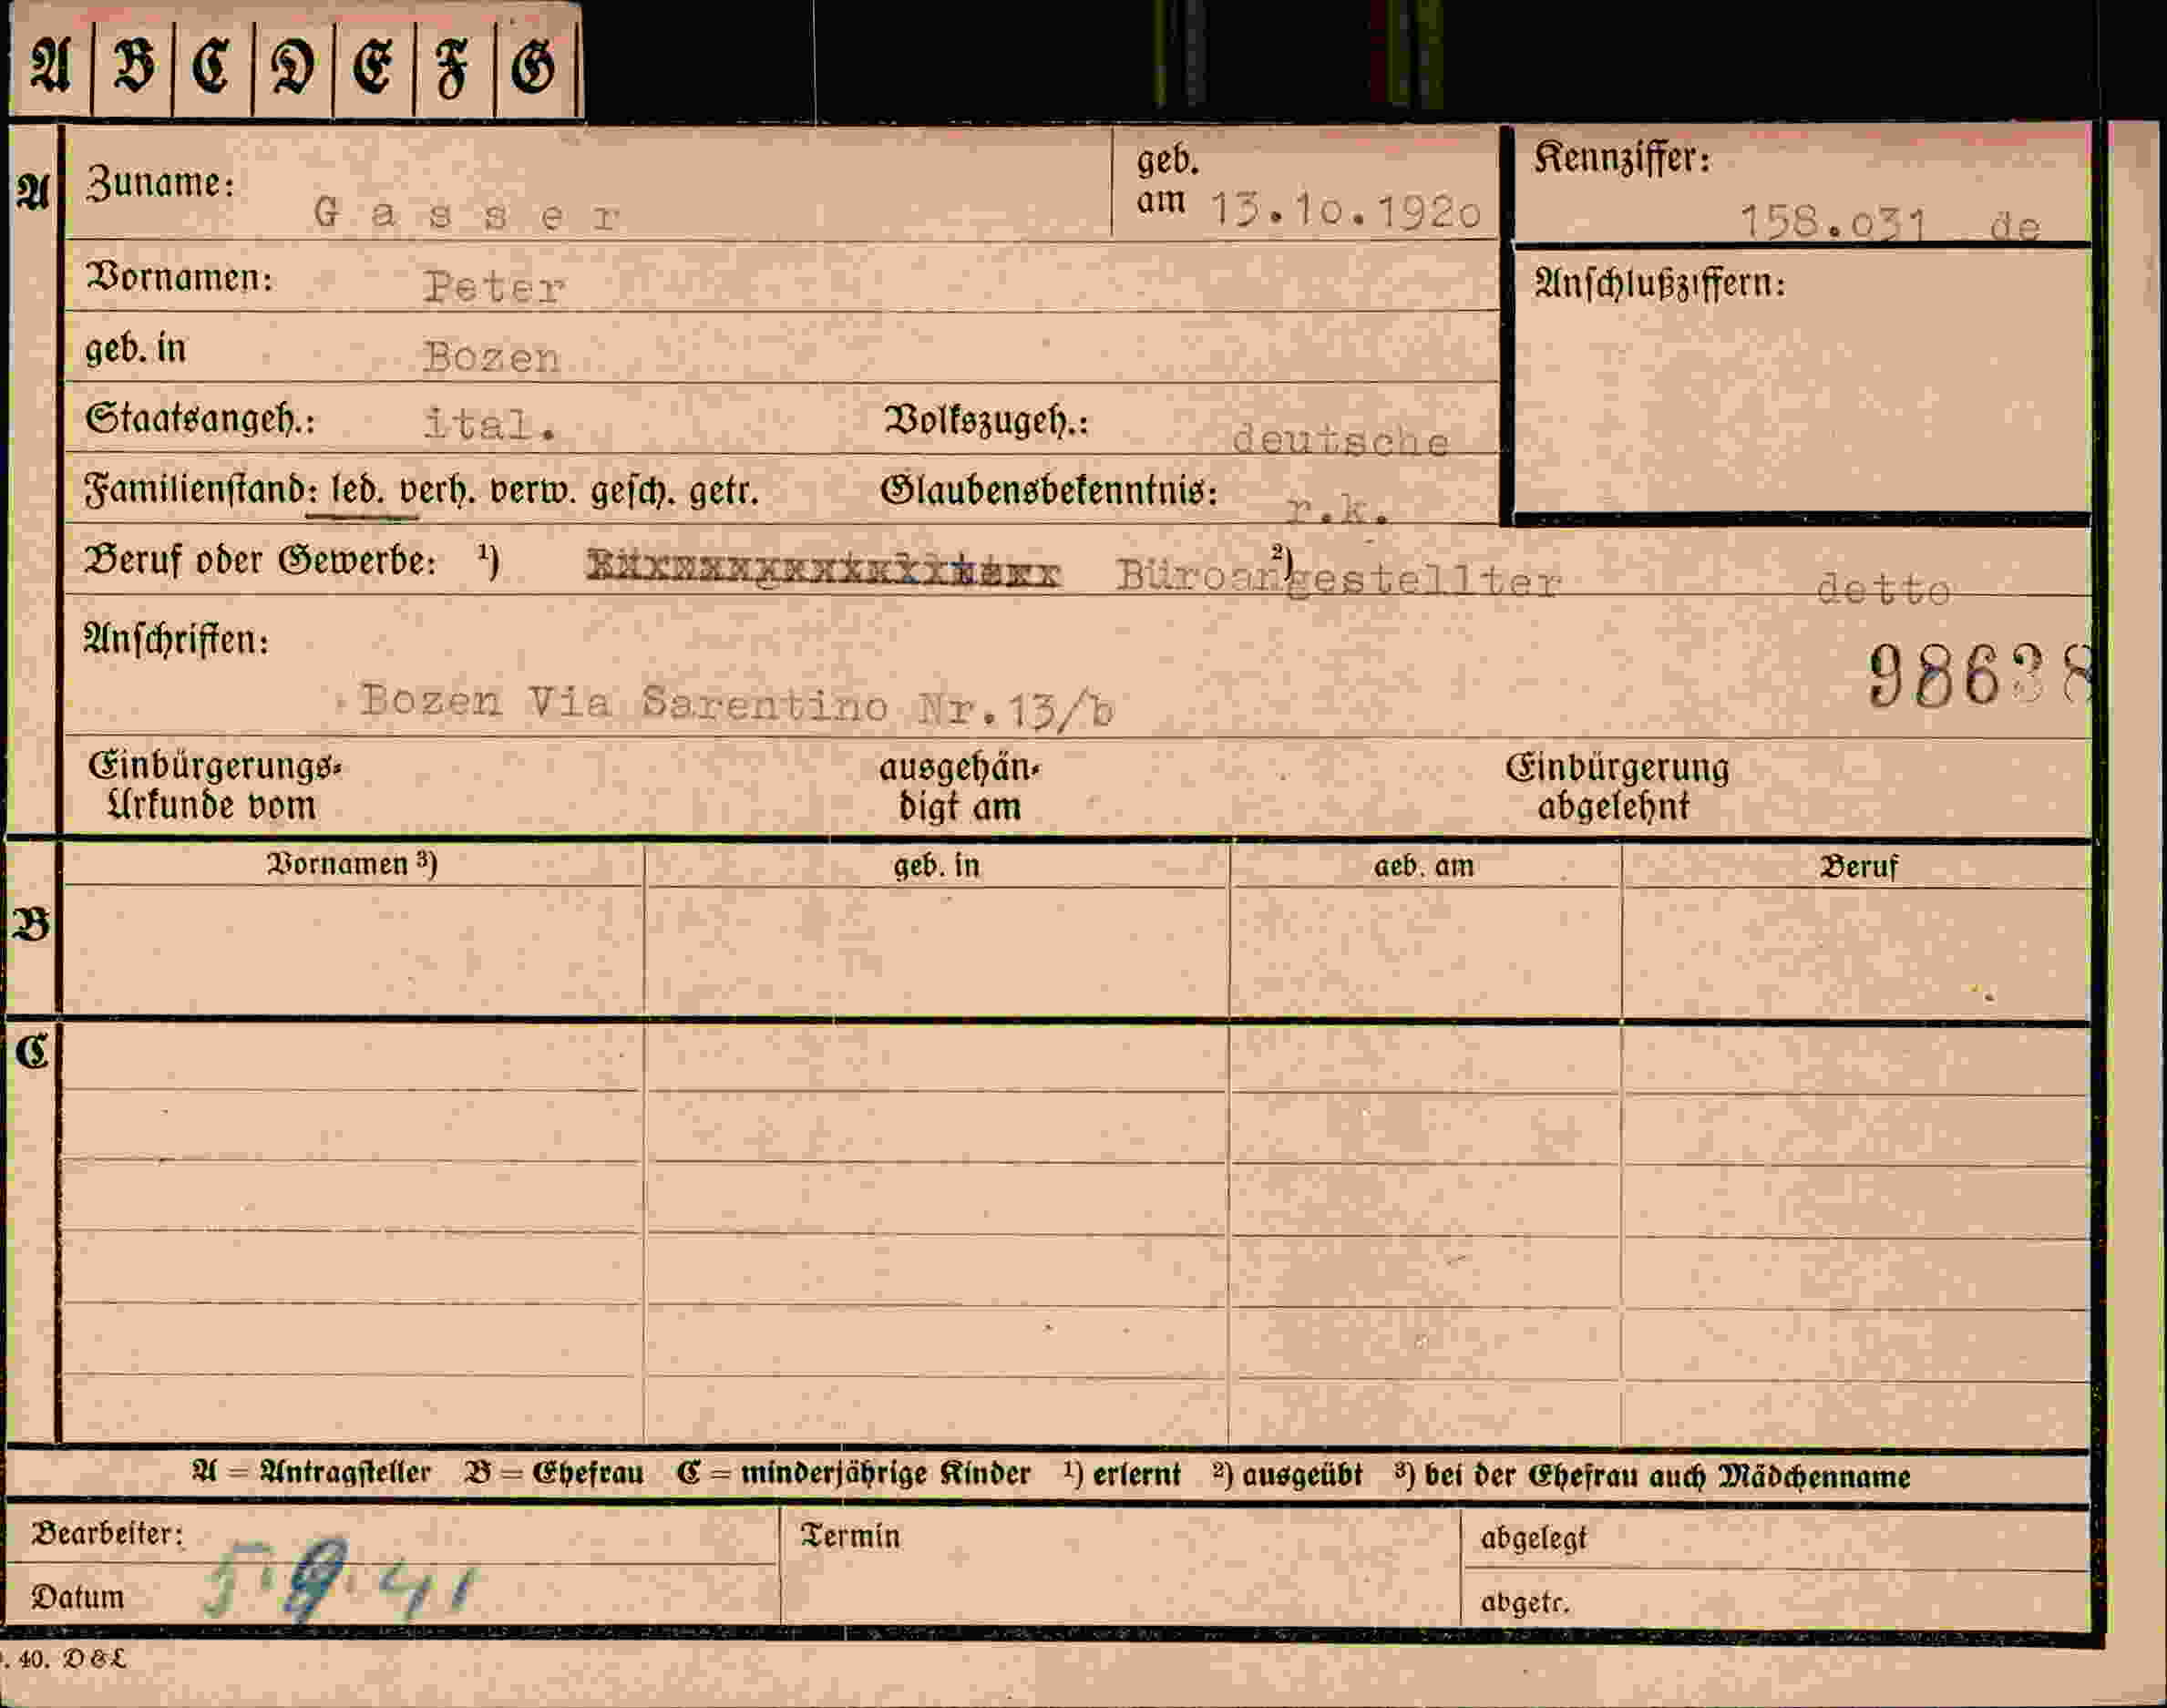 A B C D E F G
A Zuname: Gasser geb. am 13.10.1920 Kennziffer: 158.031 de
Vornamen: Peter Anschlußziffern:
geb. in Bozen
Staatsangeh.: ital. Volkszugeh.: deutsche
Familienstand: led. verh. verw. gesch. getr. Glaubensbekenntnis: r.k.
Beruf oder Gewerbe: ¹) Büroangestellter ²) detto
Anschriften: 98638
Bozen Via Sarentino Nr.13/b
Einbürgerungs- ausgehän- Einbürgerung
Urkunde vom digt am abgelehnt
Vornamen ³) geb. in geb. am Beruf
B
C
A = Antragsteller B = Ehefrau C = minderjährige Kinder ¹) erlernt ²) ausgeübt ³) bei der Ehefrau auch Mädchenname
Bearbeiter: Termin abgelegt
Datum 5.9.41 abgetr.
. 40. D & L